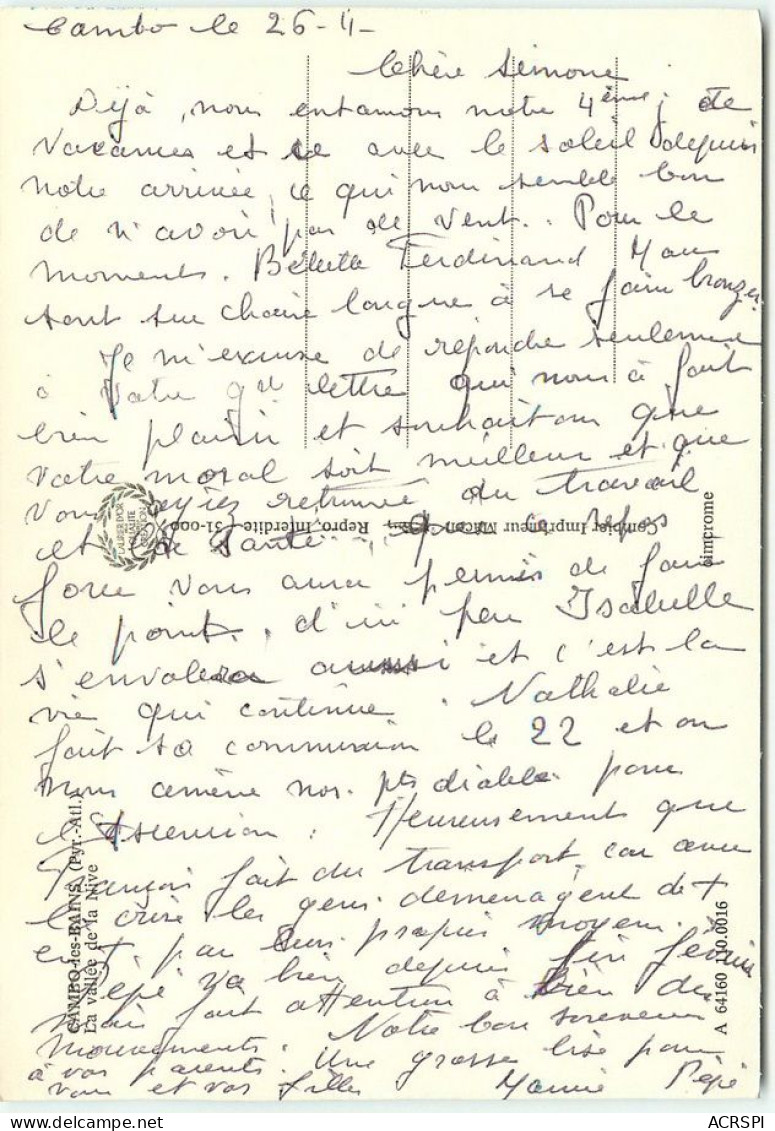 Cambo le 26-4-
Chère Simone
Déjà, nous entamons notre 4ème j de
vacances et ce avec le soleil depuis
notre arrivée, ce qui nous semble bon
de n'avoir pas de vent. Pour le
moments. Bébette Ferdinand Mau
sont sur chaise longue à se faire bronzer.
Je m'excuse de répondre seulement
à Votre lettre qui nous à fait
bien plaisir et souhaitons que
votre moral soit meilleur et que
vous ayiez retrouvé du travail
et de santé. ce repos
forcé vous aura permis de faire
le point. d'ici peu Isabelle
s'envolera aussi et c'est la
vie qui continue. Nathalie
fait sa communion le 22 et on
nous amène nos pts diables pour
l'Ascension. Heureusement que
François fait du transport, car avec
la crise les gens déménagent de +
en +, par leurs propres moyens.
Pépé va bien depuis fin février
mais fait attention à bien des
mouvements. Notre bon souvenir
à vos parents. Une grosse bise pour
vous et vos filles Mamie Pépé
CAMBO-les-BAINS (Pyr.-Atl.)
La vallée de la Nive
A 64160 110.0016
Combier Imprimeur Mâcon
Repro. Interdite
cimcrome
LAURIER D'OR
QUALITE
ACRSPI